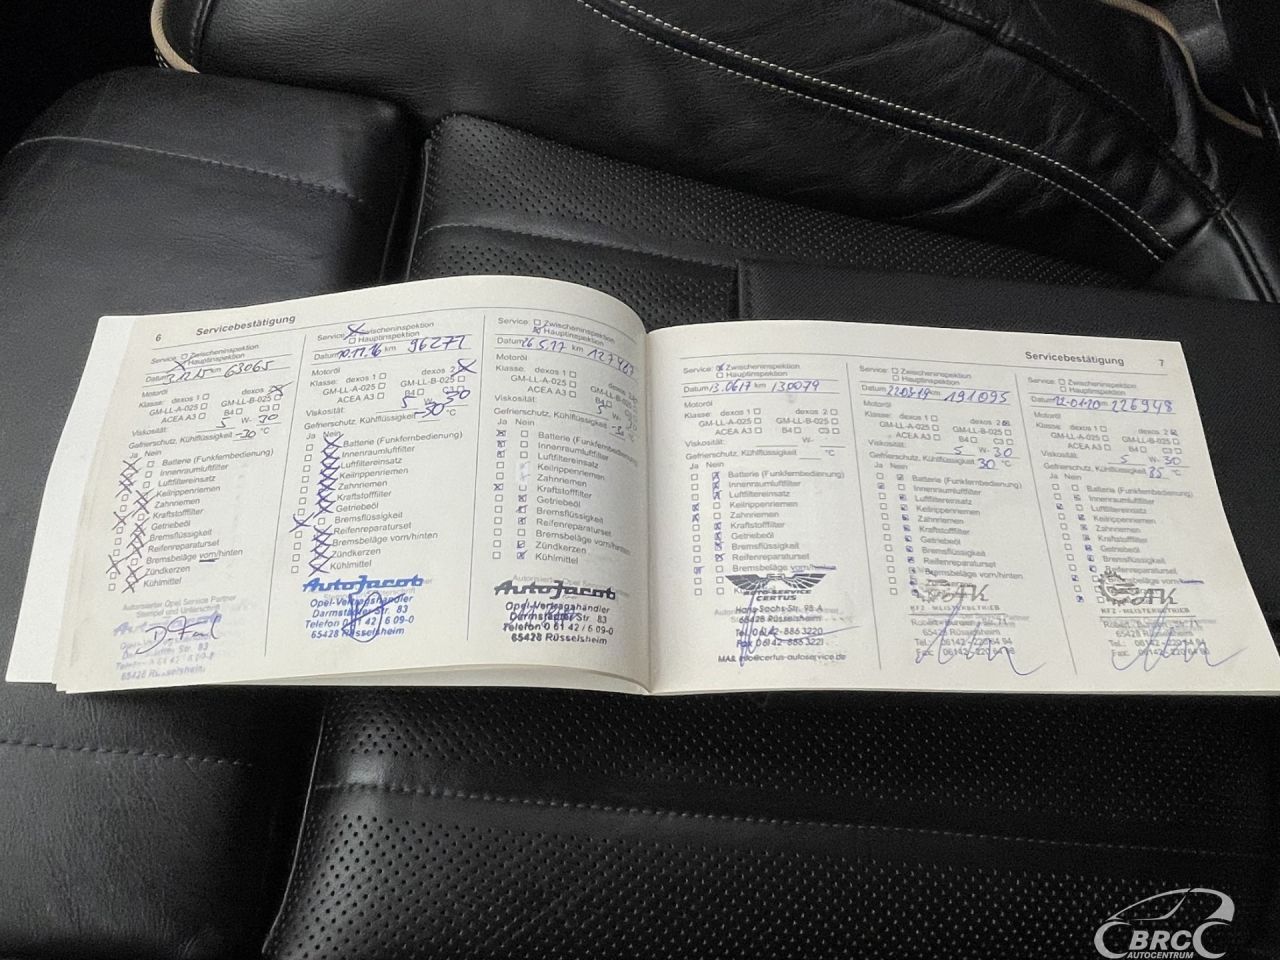 6
Servicebestätigung
Service: Zwischeninspektion
Hauptinspektion
Datum 3.12.15 km 63065
Motoröl
Klasse: dexos 1 dexos 2
GM-LL-A-025 GM-LL-B-025
ACEA A3 B4 C3
Viskosität: 5 W- 30
Gefrierschutz, Kühlflüssigkeit -30 °C
Ja Nein
Batterie (Funkfernbedienung)
Innenraumluftfilter
Luftfiltereinsatz
Keilrippenriemen
Zahnriemen
Kraftstofffilter
Getriebeöl
Bremsflüssigkeit
Reifenreparaturset
Bremsbeläge vorn/hinten
Zündkerzen
Kühlmittel
Autorisierter Opel Service Partner
Stempel und Unterschrift
65428 Rüsselsheim
Service: Zwischeninspektion
Hauptinspektion
Datum 10.11.16 km 96277
Motoröl
Klasse: dexos 1 dexos 2
GM-LL-A-025 GM-LL-B-025
ACEA A3 B4 C3
Viskosität: 5 W- 30
Gefrierschutz, Kühlflüssigkeit -30 °C
Ja Nein
Batterie (Funkfernbedienung)
Innenraumluftfilter
Luftfiltereinsatz
Keilrippenriemen
Zahnriemen
Kraftstofffilter
Getriebeöl
Bremsflüssigkeit
Reifenreparaturset
Bremsbeläge vorn/hinten
Zündkerzen
Kühlmittel
AutoJacob
Opel-Vertragshändler
Darmstädter Str. 83
Telefon 0 61 42 / 6 09-0
65428 Rüsselsheim
Service: Zwischeninspektion
Hauptinspektion
Datum 26.5.17 km
Motoröl
Klasse: dexos 1 dexos
GM-LL-A-025 GM-LL-B-025
ACEA A3 B4
Viskosität: 5 W-
Gefrierschutz, Kühlflüssigkeit
Ja Nein
Batterie (Funkfernbedienung)
Innenraumluftfilter
Luftfiltereinsatz
Keilrippenriemen
Zahnriemen
Kraftstofffilter
Getriebeöl
Bremsflüssigkeit
Reifenreparaturset
Bremsbeläge vorn/hinten
Zündkerzen
Kühlmittel
AutoJacob
Opel-Vertragshändler
Darmstädter Str. 83
Telefon 0 61 42 / 6 09-0
65428 Rüsselsheim
Servicebestätigung 7
Service: Zwischeninspektion
Hauptinspektion
Datum 13.06.17 km 130079
Motoröl
Klasse: dexos 1 dexos 2
GM-LL-A-025 GM-LL-B-025
ACEA A3 B4 C3
Viskosität: W-
Gefrierschutz, Kühlflüssigkeit °C
Ja Nein
Batterie (Funkfernbedienung)
Innenraumluftfilter
Luftfiltereinsatz
Keilrippenriemen
Zahnriemen
Kraftstofffilter
Getriebeöl
Bremsflüssigkeit
Reifenreparaturset
Bremsbeläge vorn/hinten
AUTO-SERVICE
CERTUS
Hans-Sachs-Str. 98 A
65428 Rüsselsheim
Tel. 06142-886 3220
Fax 06142-886 3221
MAIL info@certus-autoservice.de
Service: Zwischeninspektion
Hauptinspektion
Datum km 191095
Motoröl
Klasse: dexos 1 dexos 2
GM-LL-A-025 GM-LL-B-025
ACEA A3 B4 C3
Viskosität: 5 W- 30
Gefrierschutz, Kühlflüssigkeit 30 °C
Ja Nein
Batterie (Funkfernbedienung)
Innenraumluftfilter
Luftfiltereinsatz
Keilrippenriemen
Zahnriemen
Kraftstofffilter
Getriebeöl
Bremsflüssigkeit
Reifenreparaturset
Bremsbeläge vorn/hinten
KFZ - MEISTERBETRIEB
65428 Rüsselsheim
Tel.: 06142 - 220 64 94
Service: Zwischeninspektion
Hauptinspektion
Datum 22-01-20 226948
Motoröl
Klasse: dexos 1 dexos 2
GM-LL-A-025 GM-LL-B-025
ACEA A3 B4 C3
Viskosität: 5 W- 30
Gefrierschutz, Kühlflüssigkeit 35 °C
Ja Nein
Batterie (Funkfernbedienung)
Innenraumluftfilter
Luftfiltereinsatz
Keilrippenriemen
Zahnriemen
Kraftstofffilter
Getriebeöl
Bremsflüssigkeit
Reifenreparaturset
Bremsbeläge vorn/hinten
KFZ - MEISTERBETRIEB
65428 Rüsselsheim
Tel.: 06142 - 220 64 94
BRC
AUTOCENTRUM